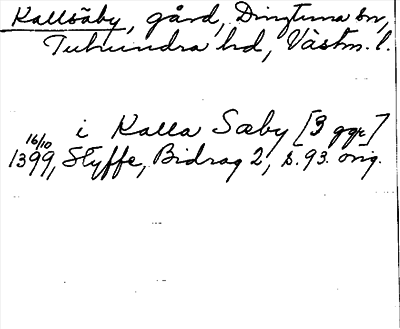 Kallsäby, gård, Dingtuna sn,
Tuhundra hd, Västm. l.
i Kalla Sæby [3 ggr]
16/10
1399, Styffe, Bidrag 2, s. 93. orig.